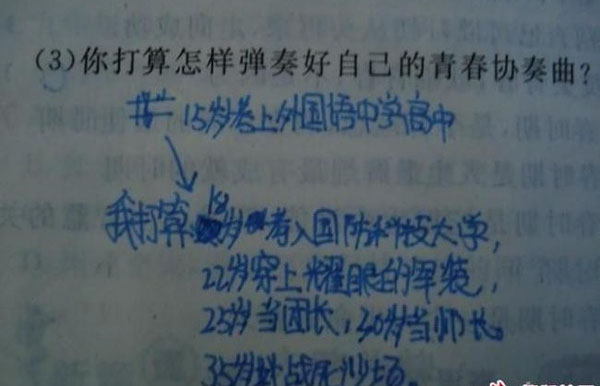 (3)你打算怎样弹奏好自己的青春协奏曲?
15岁考上外国语中学高中
我打算18岁考入国防科技大学,
22岁穿上耀眼的军装,
25岁当团长,30岁当师长。
35岁战死沙场。